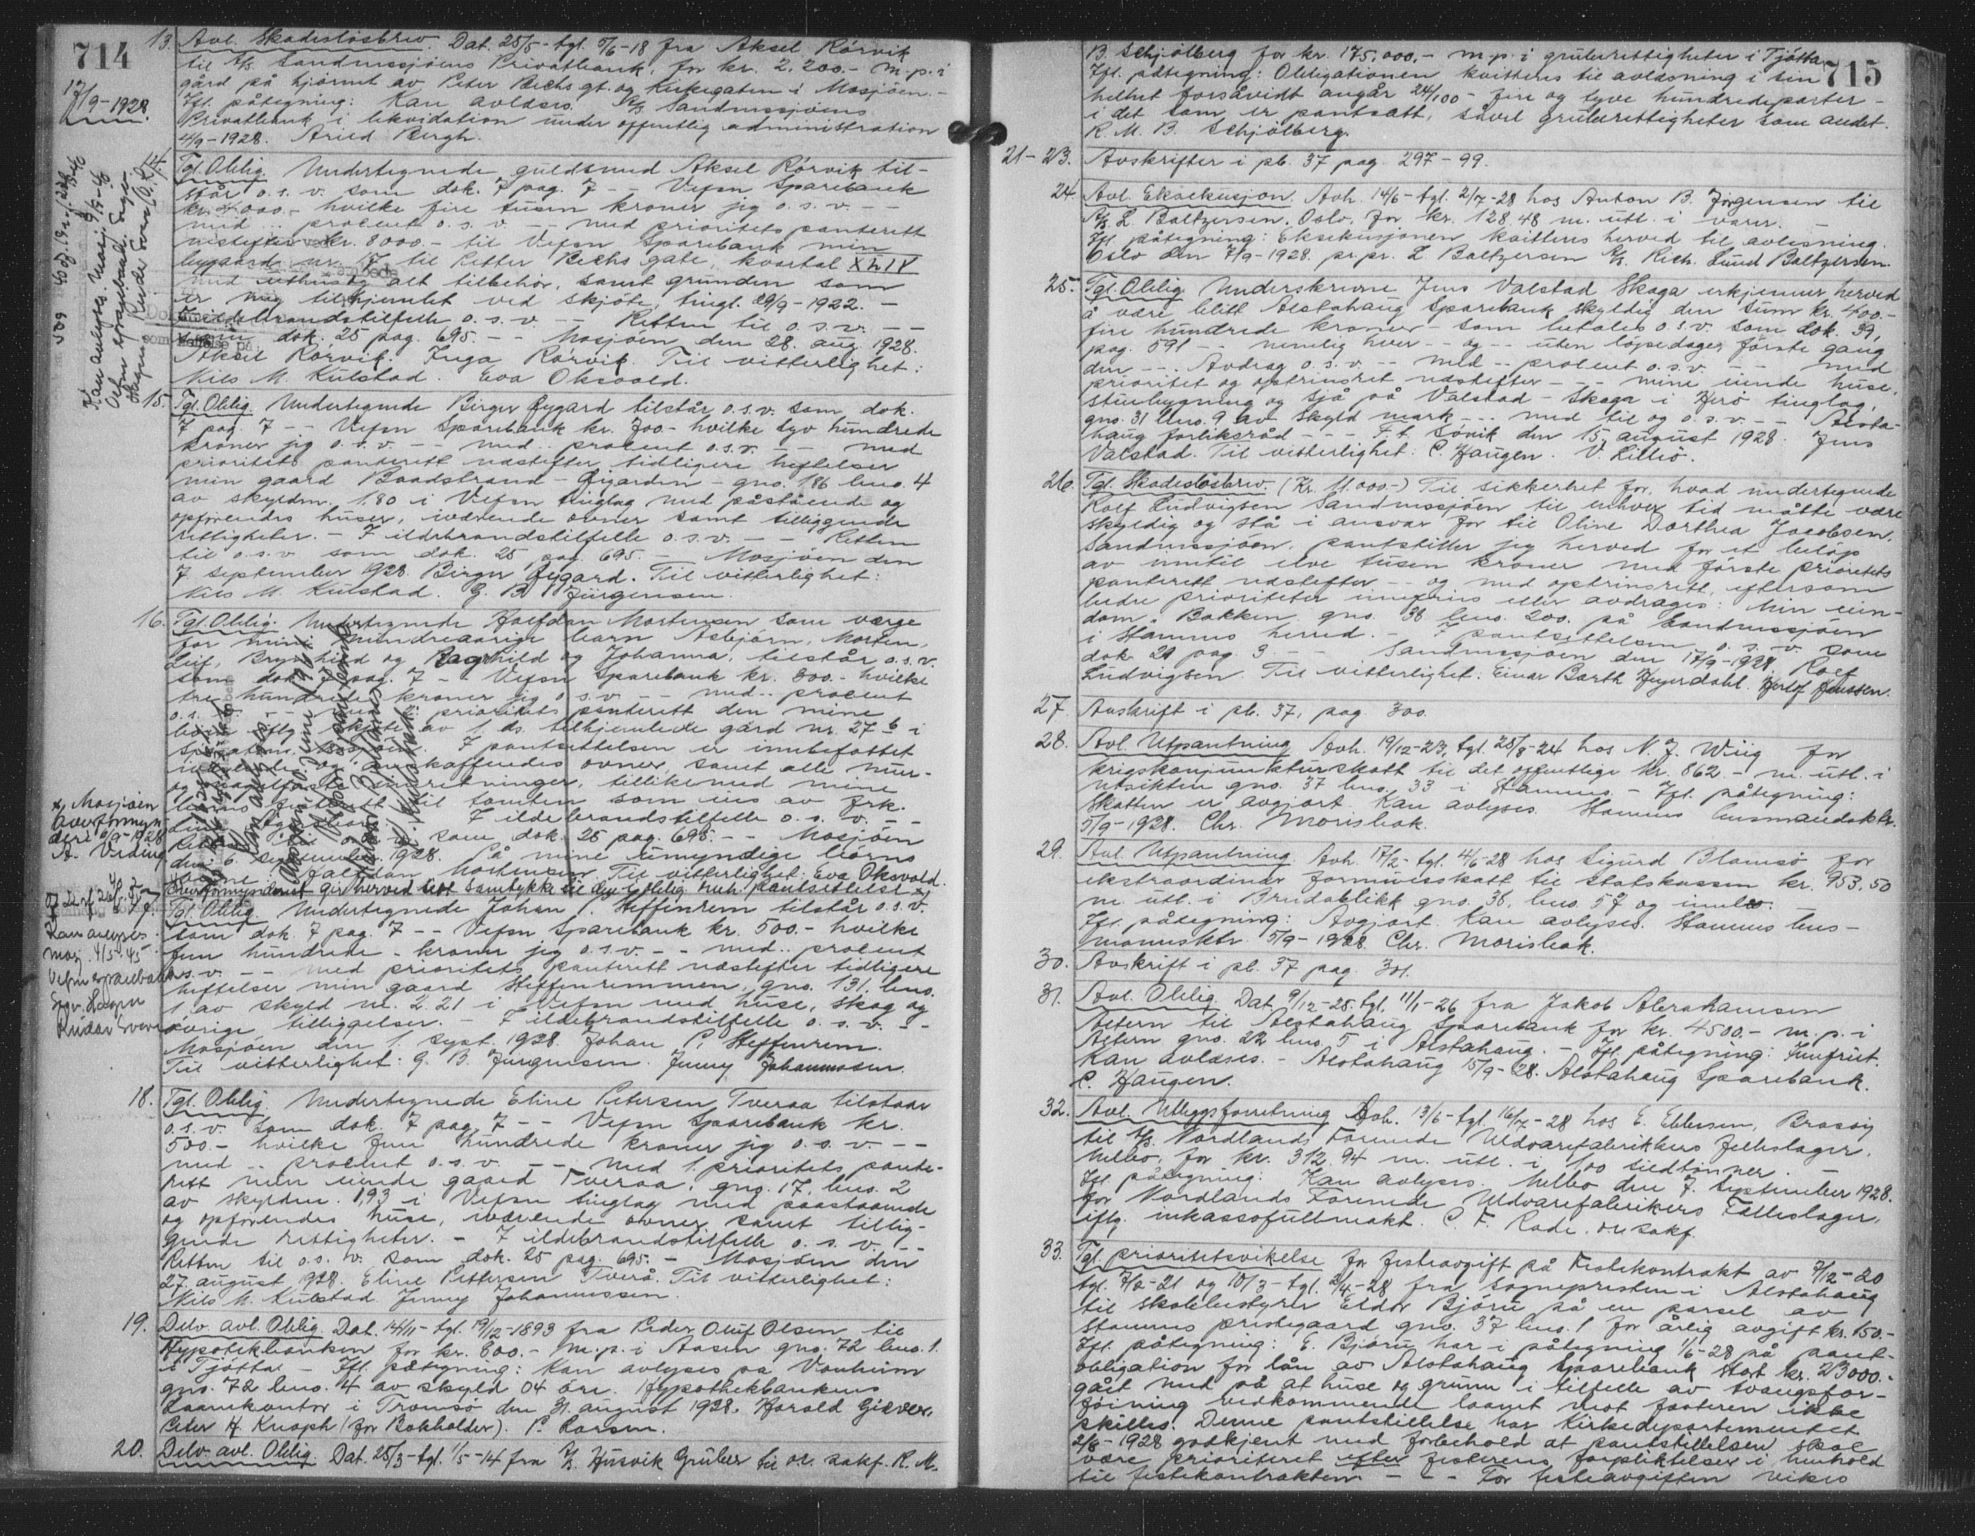 714
17/9-1928.
13. Avl. Skadeslösbrev. Dat. 25/5- tgl. 5/6-18 fra Aksel Rörvik
til A/S Sandnessjöens Privatbank, for kr. 2.200.- m.p. i
gård på hjörnet av Peter Bechs gt. og Kirkegaten i Mosjöen.-
Ifl. påtegning: Kan avlöses. A/S Sandnessjöens
Privatbank i likvidation under offentlig administration
4/9-1928. Arild Bergh.
Tgl. Oblig. Undertegnede guldsmed Aksel Rörvik til-
står o.s.v. som dok. 7 pag. 7 - - Vefsn Sparebank
kr. 4000,- hvilke fire tusen kroner jeg o.s.v. - -
med .. procent o.s.v. - - med prioritets panterett
næstefter kr. 8000.- til Vefsn Sparebank min
bygaard nr. 7 til Petter Bechs gate, kvartal XLIV
med uthus og alt tilbehör, samt grunden som
er mig tilhjemlet ved skjöte, tingl. 29/9-1922. -
I ildebrandstilfelle o.s.v. - - Retten til o.s.v. - -
som dok. 25 pag. 695. - - Mosjöen den 28. aug. 1928.
Aksel Rörvik. Inga Rörvik. Til vitterlighet:
Nils M. Kulstad. Eva Oksvold.
15. Tgl. Oblig. Undertegnede Birger Öygard tilstår o.s.v. som dok.
7 pag. 7 - - Vefsn Sparebank kr. 700- hvilke syv hundrede
kroner jeg o.s.v. - - med .. procent o.s.v. - - med
prioritets panterett næstefter tidligere heftelser
min gaard Baadstrand - Öygarden - gno. 186 bno. 4
av skyldm. 1.80 i Vefsn tinglag med påstående og
opförendes huser, iværende ovner samt tilliggende
rettigheter. - I ildebrandstilfelle o.s.v. - - Retten
til o.s.v. som dok. 25 pag. 695. - Mosjöen den
7 september 1928. Birger Öygard. Til vitterlighet:
Nils M. Kulstad. G. B. Jürgensen.
16. Tgl. Oblig. Undertegnede Halfdan Mortensen som værge
for mine mindreaarige barn Asbjörn, Morten,
Leif, Brynhild og Ragnhild og Johanna, tilstår o.s.v.
som dok. 7 pag. 7 - - Vefsn Sparebank kr. 300.- hvilke
tre hundrede kroner jeg o.s.v. - - med .. procent
o.s.v. - - med prioritets panterett den mine
börn iflg. skjöte av 1 ds. tilhjemlede gård nr. 27 b i
I pantsettelsen er innbefattet
og anskaffendes ovner, samt alle mur-
og innretninger, tillikemed mine
börns festerett til tomten som eies av frk.
I ildebrandstilfelle o.s.v. - -
Retten som dok. 25 pag. 695 - - Mosjöen
den 6 september 1928. På mine umyndige börns
vegne: Halfdan Mortensen. Til vitterlighet: Eva Oksvold.
Overformynderiet gir herved sitt samtykke til den i oblig. nevnte pantsettelse. x)
x) Mosjöen
Overformyn-
deri 6/9-1928
A. Veding
Tgl. Oblig. Undertegnede Johan P. Steffenrem tilstår o.s.v.
som dok. 7 pag. 7 - - Vefsn Sparebank kr. 500.- hvilke
fem hundrede - kroner jeg o.s.v. - - med .. procent
o.s.v. - - med prioritets panterett næstefter tidligere
heftelser min gaard Steffenremmen, gno. 131, bno.
1 av skyld m. 2.21 i Vefsn med huse, skog og
övrige tilliggelser. - I ildebrandstilfelle o.s.v. - -
Mosjöen den 1. sept. 1928. Johan P. Steffenrem.
Til vitterlighet: G. B. Jürgensen. Jenny Johannessen.
Kan avlyses.
Mosj. 4/5-45
Vefsn sparebank
18. Tgl. Oblig. Undertegnede Eline Petersen Tveraa tilstaar
o.s.v. som dok. 7 pag. 7 - - Vefsn Sparebank kr.
500.- hvilke fem hundrede kroner jeg o.s.v. - -
med .. procent o.s.v. - - med 1. prioritets pante-
rett min eiende gaard Tveraa, gno. 17, bno. 2
av skyldm. 1,93 i Vefsn tinglag med paastaaende
og opförendes huse, iværende ovner samt tillig-
gende rettigheter. - I ildebrandstilfelle o.s.v. - -
Retten til o.s.v. som dok. 25 pag. 695. - Mosjöen den
27. august 1928. Eline Pettersen Tverå. Til vitterlighet:
Nils M. Kulstad. Jenny Johannessen.
19. Delv. avl. Oblig. Dat. 14/11- tgl. 19/12-1893 fra Peder Oluf Olsen til
Hypotekbanken for kr. 600.- m.p. i Aasen gno. 72 bno. 1.
i Tjötta. - Ifl. påtegning: Kan avlyses på Vonheim
gno. 72 bno. 4 av skyld 04 öre. Hypothekbankens
Laanekontor i Tromsö den 31. august 1928. Harald Giæver.
Peter H. Knoph (for Bokholder). P. Larsen.
20. Delv. avl. Oblig. Dat. 25/3- tgl. 1/5-14 fra A/S Husvik Gruber til o.r. sakf. R. M.
715
B. Schjölberg for kr. 175.000,- m.p. i gruberettigheter i Tjötta.
Ifl. påtegning: Obligationen kvitteres til avlæsning i sin
helhet forsåvidt angår 24/100 - fire og tyve hundredeparter -
i det som er pantsatt, såvel gruberettigheter som andet.
R. M. B. Schjölberg.
21-23. Avskrifter i pb. 37 pag. 297-99.
24. Avl. Eksekusjon. Avh. 14/6- tgl. 2/7-28 hos Anton B. Jörgensen til
A/S L. Baltzersen, Oslo, for kr. 128.48 m. utl. i varer. -
Ifl. påtegning: Eksekusjonen kvitteres herved til avlesning.
Oslo den 7/9-1928. pr. pr. L. Baltzersen A/S Rich. Lund Baltzersen.
25. Tgl. Oblig. Underskrevne Jens Valstad Skaga erkjenner herved
å være blitt Alstahaug Sparebank skyldig den sum kr. 400.-
fire hundrede kroner - som betales o.s.v. som dok. 39,
pag. 591 - - nemlig hver - - og - - uten löpedager förste gang
den - - . Avdrag o.s.v. - - med - - procent o.s.v. - - med
prioritet og optrinsret næstefter - - - mine eiende huse,
stuebygning og sjå på Valstad - Skaga i Herö tinglag,
gno. 31 bno. 9 av skyld mark - - - med til og o.s.v. - - Alsta-
haug forliksråd - - - F. t. Sövik den 15. august 1928. Jens
Valstad. Til vitterlighet: C. Haugen. V. Lillö.
26. Tgl. Skadeslösbrev. (Kr. 11.000.-) Til sikkerhet for, hvad undertegnede
Rolf Ludvigsen Sandnessjöen til enhver tid måtte være
skyldig og stå i ansvar for til Oline Dorthea Jacobsen,
Sandnessjöen, pantsetter jeg herved for et belöp
av inntil elve tusen kroner med förste prioritets
panterett næstefter - - og med optrinsrett, eftersom
bedre prioriteter innfries eller avdrages: Min eien-
dom "Bakken" gno. 38 bno. 200. på Sandnessjöen
i Stamnes herred. - I pantsettelsen o.s.v. som
dok. 21 pag. 3 - - Sandnessjöen den 17/9-1928. Rolf
Ludvigsen. Til vitterlighet: Einar Barth Heyerdahl. Herlof Jenssen.
27. Avskrift i pb. 37, pag. 300.
28. Avl. Utpantning Avh. 19/12-23, tgl. 28/8-24 hos N. J. Wiig for
krigskonjunkturskatt til det offentlige kr. 862.- m. utl. i
Utsikten gno. 37 bno. 33 i Stamnes. - Ifl. påtegning:
Skatten er avgjort. Kan avlyses. Stamnes lensmandsktr.
5/9-1928. Chr. Morisbak.
29. Avl. Utpantning Avh. 17/2- tgl. 4/6-28 hos Sigurd Blomsö for
ekstraordinær formuesskatt til statskassen kr. 953.50
m. utl. i Breidablikk gno. 38, bno. 57 og
Ifl. påtegning: Avgjort. Kan avlyses. Stamnes lens-
mannsktr 5/9-1928. Chr. Morisbak.
30. Avskrift i pb. 37 pag. 301.
31. Avl. Oblig. Dat. 9/12-25. tgl. 11/1-26 fra Jakob Abrahamsen
Altern til Alstahaug Sparebank for kr. 4500.- m.p. i
Altern gno. 22 bno. 5 i Alstahaug. - Ifl. påtegning: Innfriet.
Kan avleses. - Alstahaug 15/9-28. Alstahaug Sparebank.
C. Haugen.
32. Avl. Utleggsforretning Avh. 13/6- tgl. 16/7-28 hos E. Ebbesen, Brasöy
til A/S Nordlands Forenede Uldvarefabrikkers Felleslager,
Melbo, for kr. 312.94 m. utl. i 100 sildtönner. -
Ifl. påtegning: Kan avlyses. Melbo den 7. september 1928.
for Nordlands Forenede Uldvarefabrikers Fælleslager,
iflg. inkassofullmakt. C. F. Rode. o.r. sakf.
33. Tgl. prioritetsvikelse for festeavgift på Festekontrakt av 7/12-20
tgl. 7/2-21 og 10/3- tgl. 2/4-28 fra Sognepresten i Alstahaug
til skolebestyrer Eldor Björu på en parsel av
Stamnes prestegaard gno. 37 bno. 1 for årlig avgift kr. 150.-
Ifl. påtegning: E. Björu har i påtegning 1/6-28 på pant-
obligation for lån av Alstahaug Sparebank stort kr. 23000.-
gået med på at huse og grunn i tilfelle av tvangsfor-
föining vedkommende laanet mot festeren ikke
skilles. Denne pantstillelse har Kirkedepartementet
2/8-1928 godkjent med forbehold at pantstillelsen skal
være prioriteret efter festerens forpliktelser i henhold
til festekontrakten - - - For festeavgiften vikes